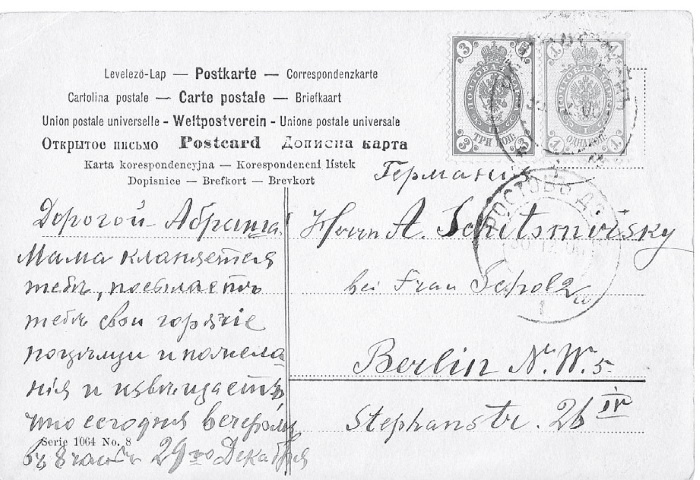 Levelező-Lap — Postkarte — Correspondenzkarte
Cartolina postale — Carte postale — Briefkaart
Union postale universelle - Weltpostverein - Unione postale universale
Открытое письмо Postcard Дописна карта
Karta korespondencyjna — Korespondencni listek
Dopisnice — Brefkort — Brevkort
3 3
ТРИ КОП.
3 3
1 1
1 1
Германия
РОСТОВЪ Д
1
Дорогой Абраша.
Мама кланяется
тебѣ, посылаетъ
тебѣ свои горячіе
поцѣлуи и пожела
нія и извѣщаетъ
что сегодня вечеромъ
въ 8 29го Декабря
Serie 1064 No. 8
Herrn A.
bei Frau Scholz
Berlin N.W. 5.
Stephanstr. 26 IV